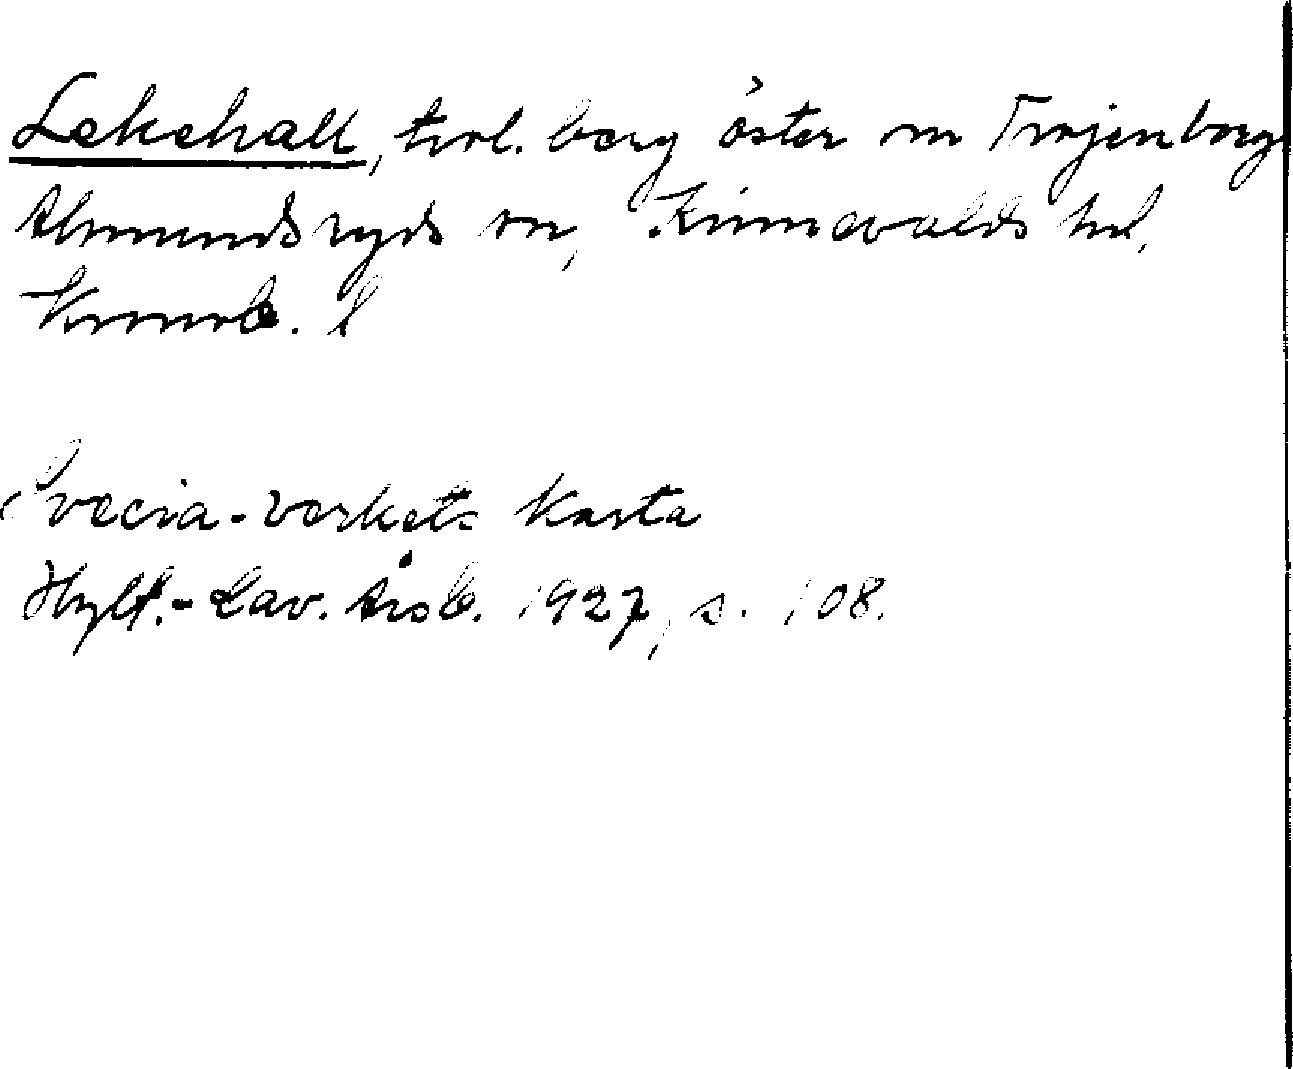 Lekehall, trol. berg öster om Trojenborg
Almundsryds sn, Kinnevalds hd,
Kronob. l
Svecia-verkets karta
Hylt.-Cav. Årsb. 1927, s. 108.